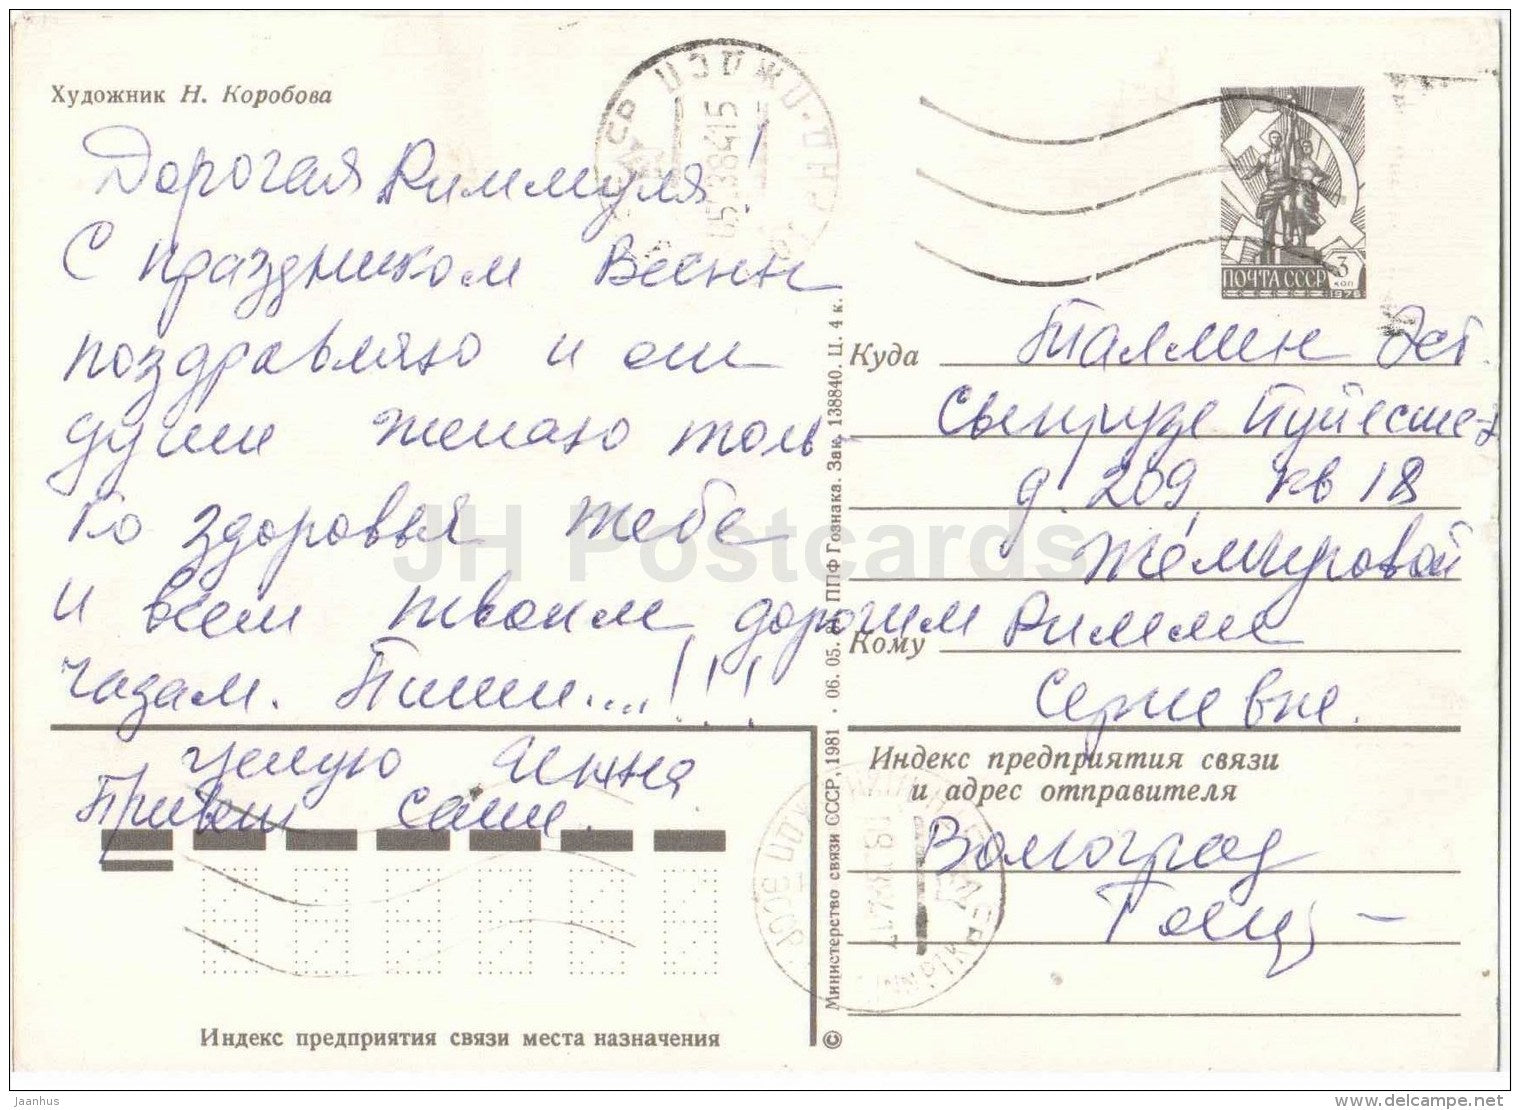 Художник Н. Коробова
Дорогая Риммуля!
С праздником Весны
поздравляю и от
души желаю толь
ко здоровья тебе
и всем твоим дорогим
чадам. Пиши....!!!
Целую Инна
Привет Саше.
Индекс предприятия связи места назначения
© Министерство связи СССР, 1981 · 06. 05. ППФ Гознака. Зак. 138840. Ц. 4 к.
ПОЧТА СССР 3
КОП
1976
Куда Таллин Эст.
д. 209, кв 18
Кому Римме
Сергиевне.
Индекс предприятия связи
и адрес отправителя
Волгоград
JH Postcards
Jaanhus
delcampe.net